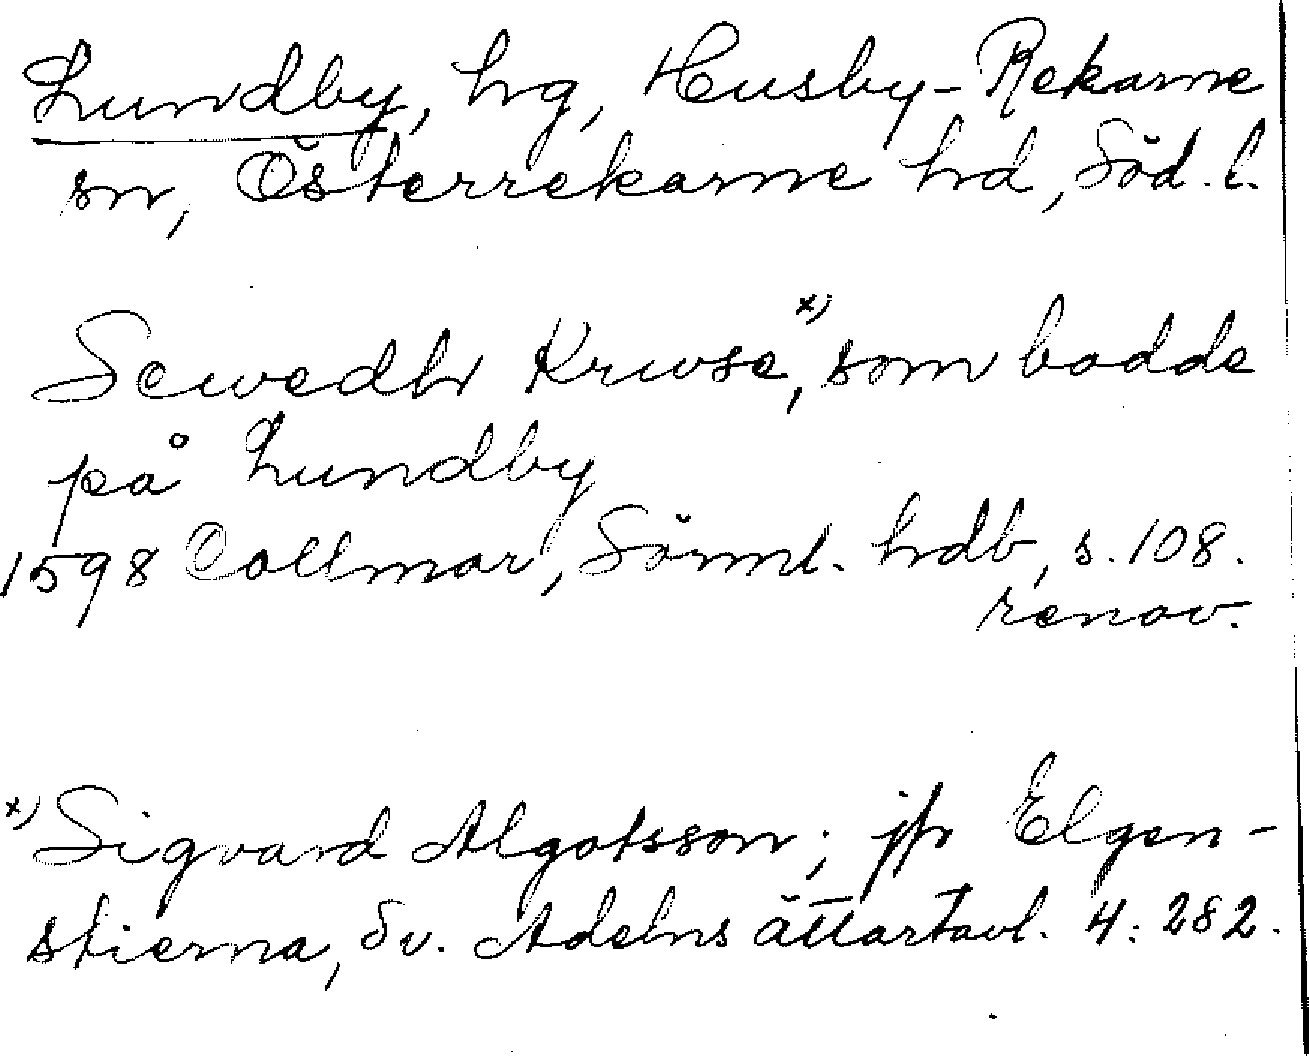 Lundby, hg, Husby-Rekarne
sn, Österrekarne hd, Söd. l.
Sewedh Kruse,x) som bodde
på Lundby
1598 Collmar, Sörml. hdb, s. 108.
renov.
x) Sigvard Algotsson; jfr Elgen-
stierna, Sv. Adelns ättartavl. 4: 282.